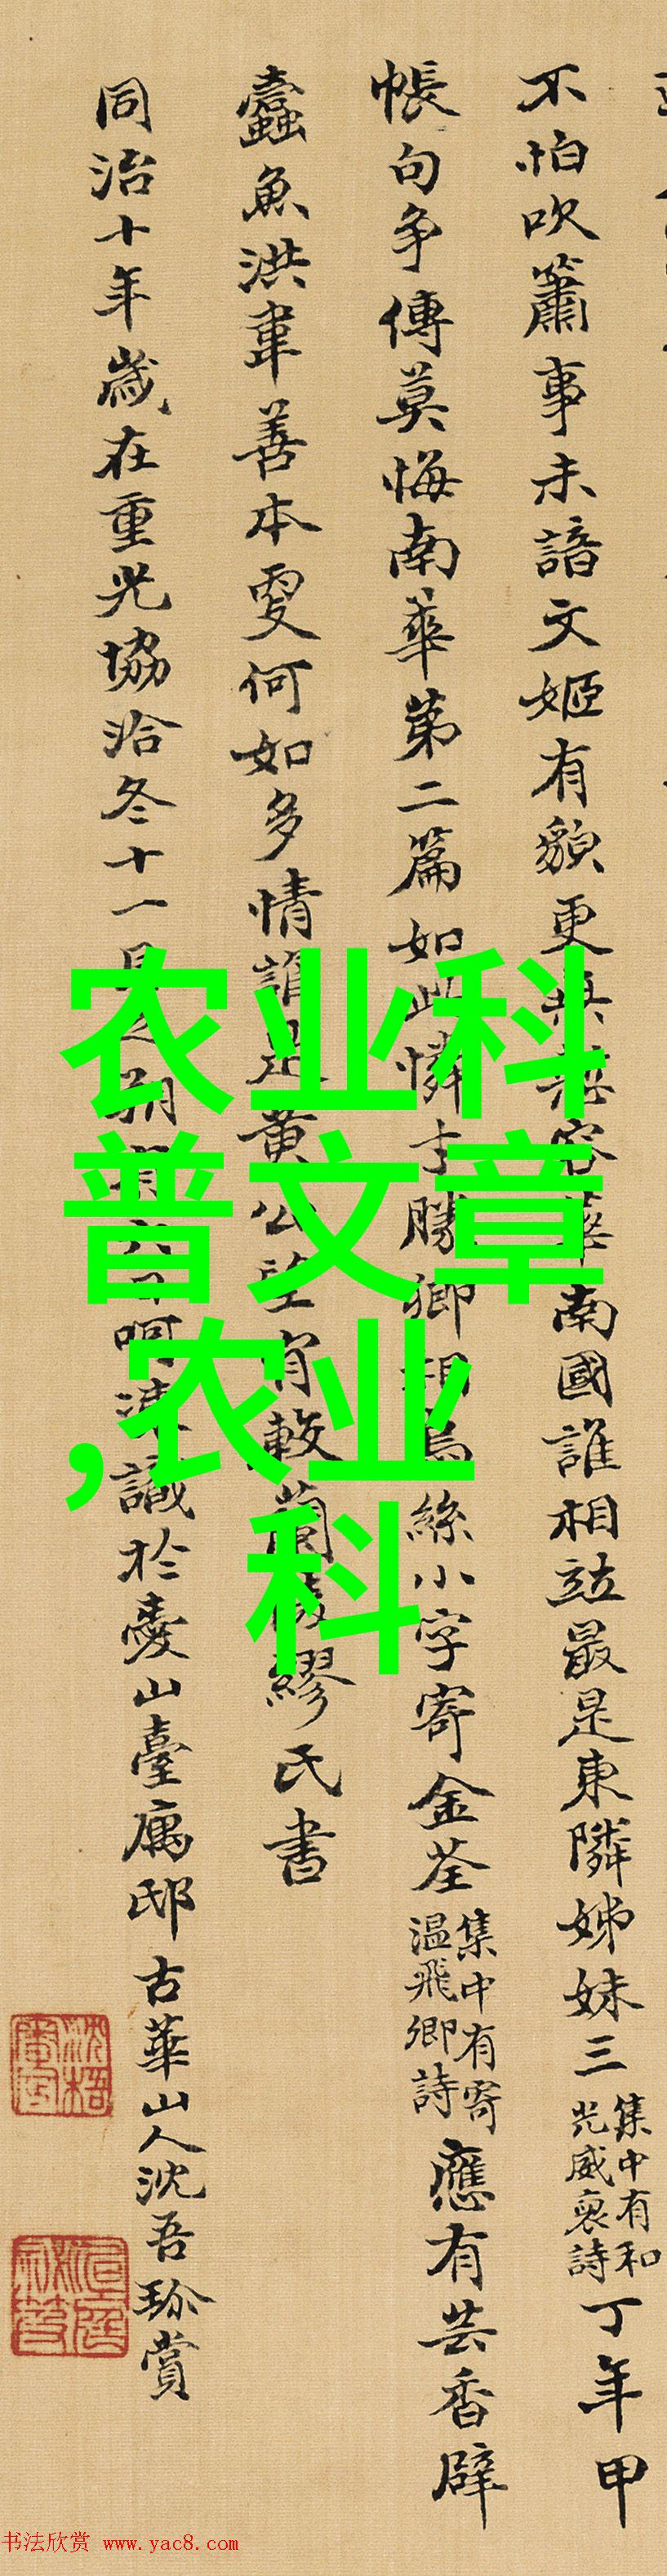 不怕吹簫事未諳文姬有貌更無
容華南國誰相竝最是東隣姊妹三
集中有和
光威裒詩
丁年甲
帳句争傳莫悔南華第二篇如此憐才勝卿相烏絲小字寄金荃
集中有寄
温飛卿詩
應有芸香辟
蠹魚洪韋善本更何如多情誰是黄公望
繆氏書
同治十年歲在重光協洽冬十一月
呵凍識於
山臺寓邸古華山人沈吾珍賞
农业科
普文章
,农业
科
书法欣赏 www.yac8.com